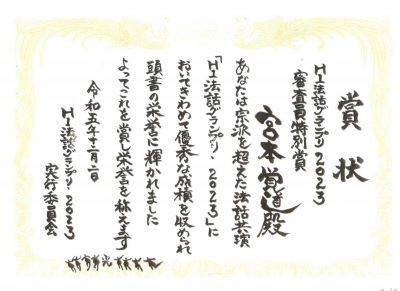 賞状
H1法話グランプリ2023
審査員特別賞
宮本覚道殿
あなたは宗派を超えた法話共演
「H1法話グランプリ・2023」に
おいてきわめて優秀な成績を収められ
頭書の栄誉に輝かれました
よってこれを賞し栄誉を称えます
令和五年十二月二日
H1法話グランプリ2023
実行委員会